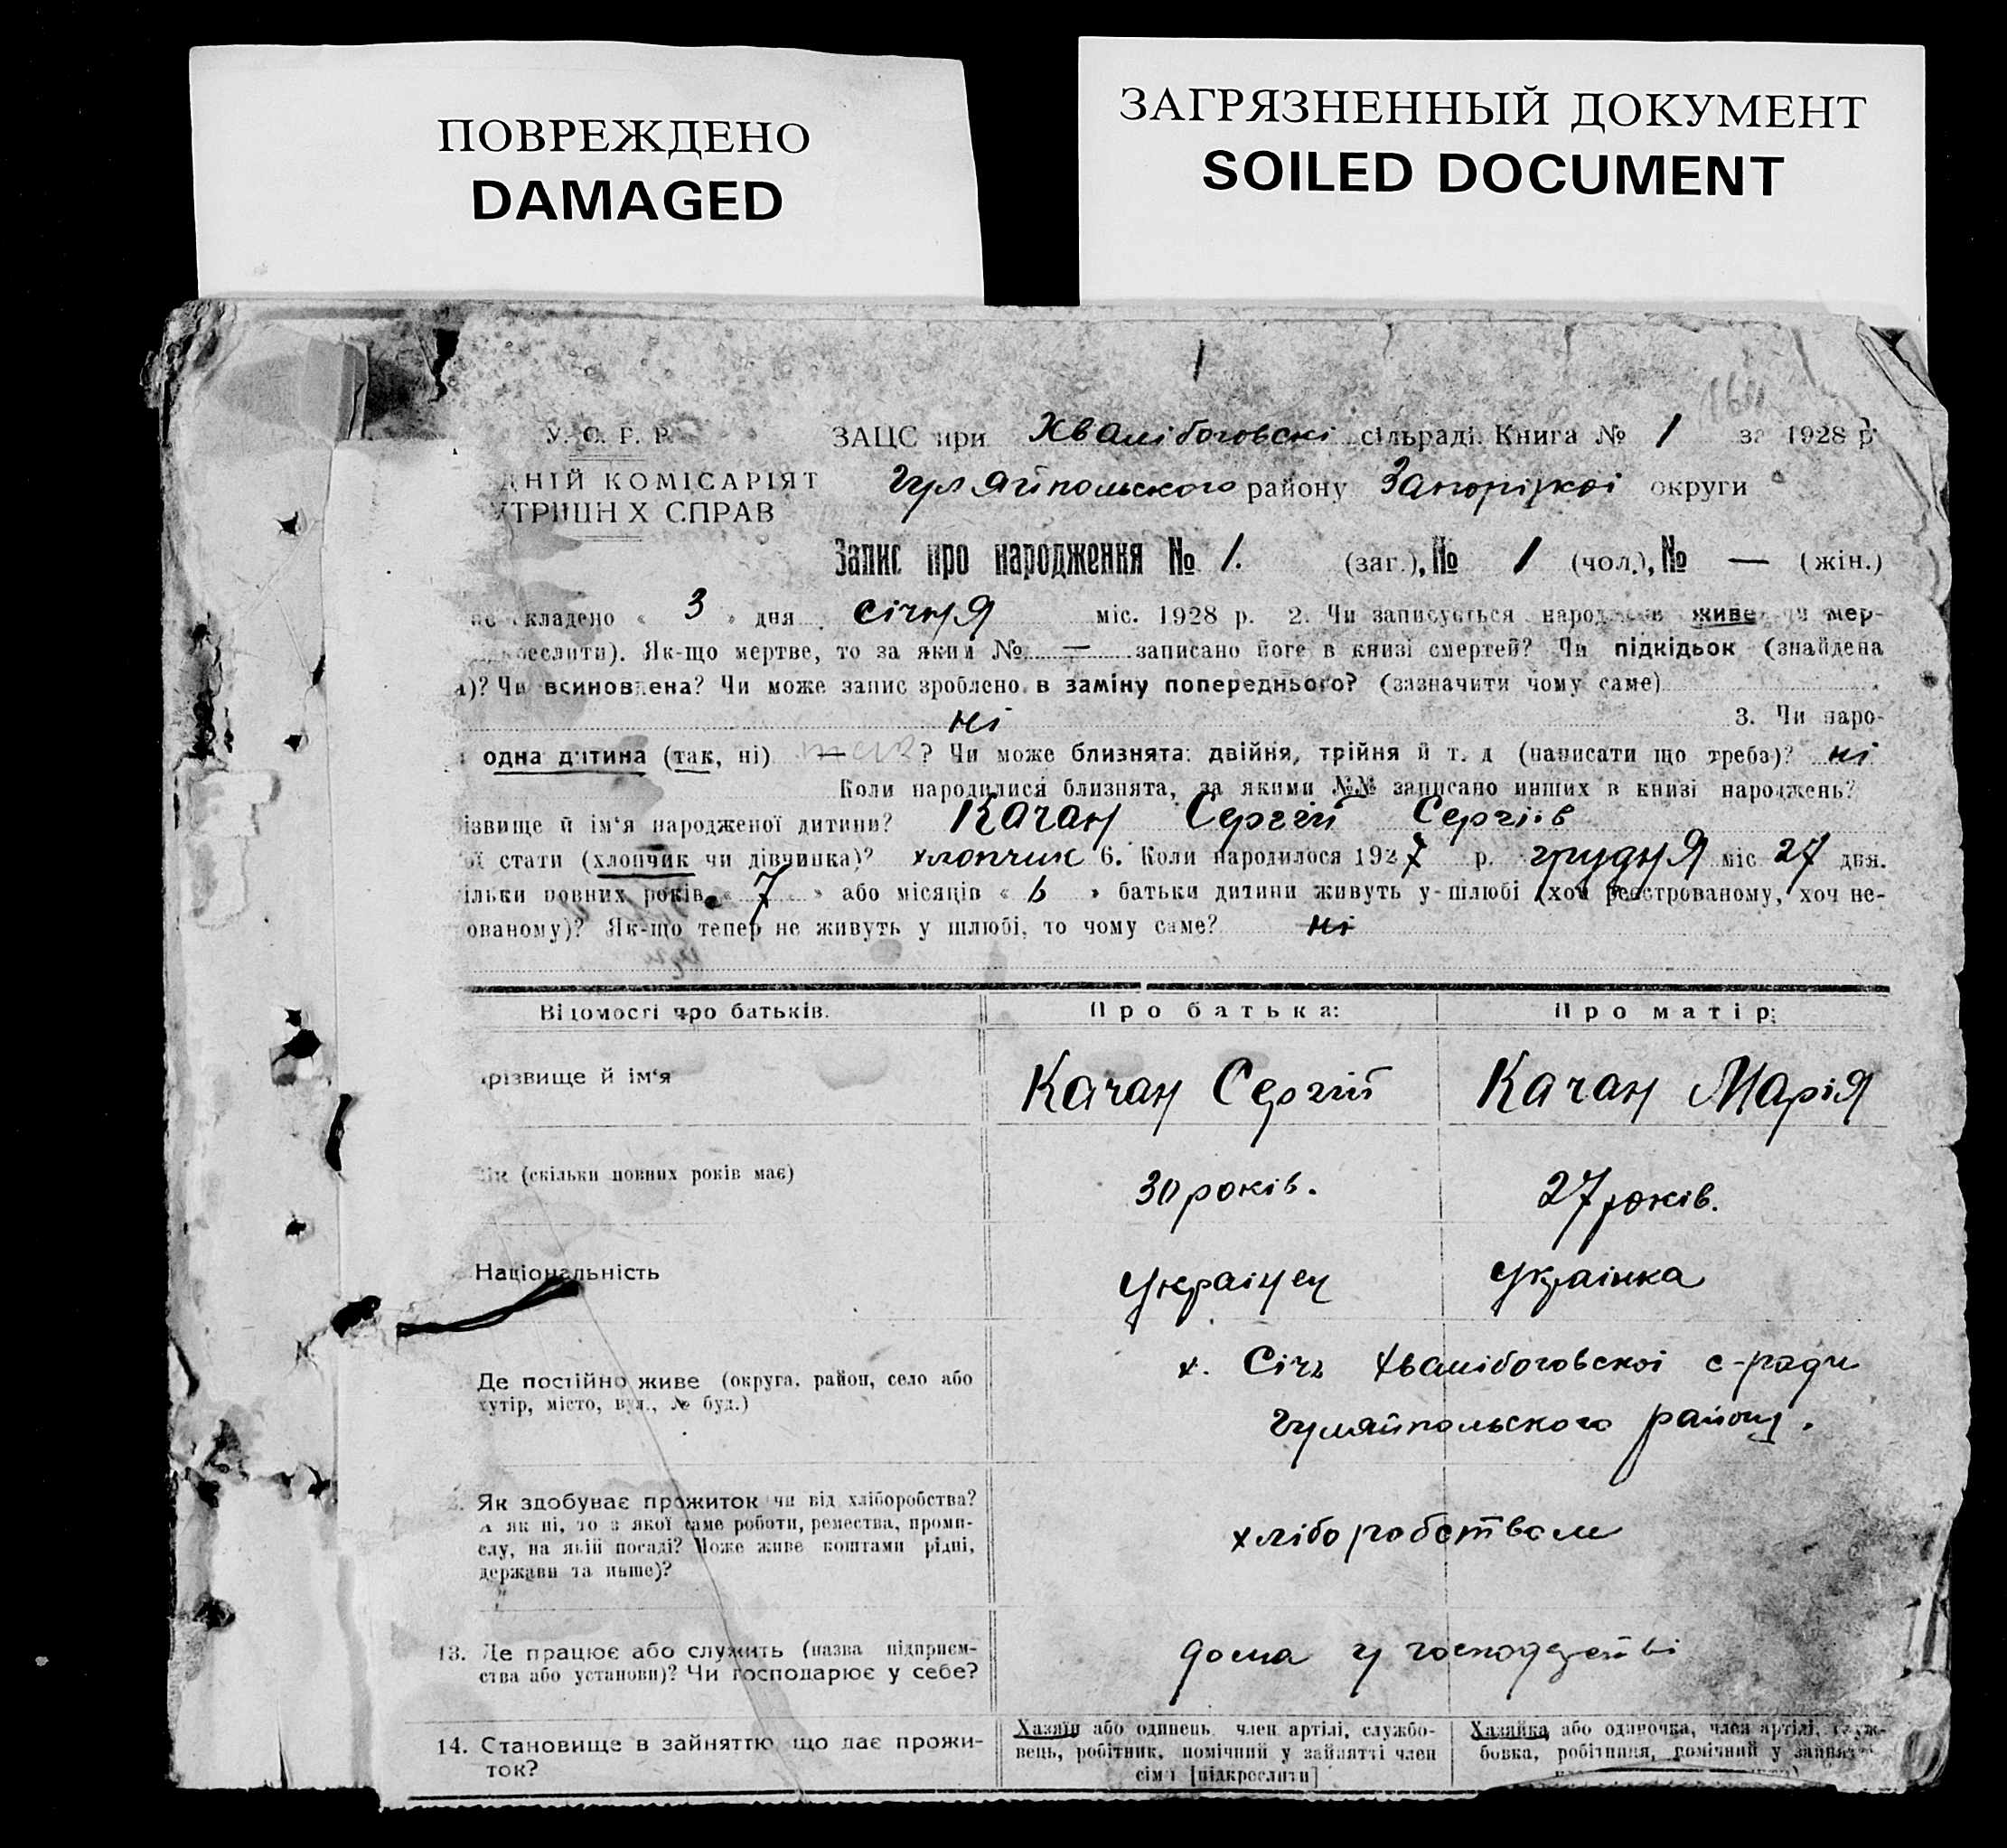 ПОВРЕЖДЕНО
DAMAGED
ЗАГРЯЗНЕННЫЙ ДОКУМЕНТ
SOILED DOCUMENT
1
У. С. Р. Р.
ЗАЦС при Хвалібоговскі сільраді. Книга № 1 за 1928 р.
ДНІЙ КОМІСАРІЯТ
Гуляйпольского району Запоріжкоі округи
ТРІШН Х СПРАВ
Запис про народження № 1. (заг.), № 1 (чол.), № — (жін.)
кладено « 3 » дня січня міс. 1928 р. 2. Чи записується народжене живе чи мер-
реслити). Як-що мертве, то за яким № — записано його в книзі смертей? Чи підкідьок (знайдена
а)? Чи всиновлена? Чи може запис зроблено в заміну попереднього? (зазначити чому саме)
ні
3. Чи наро-
одна дитина (так, ні) ? Чи може близнята: двійня, трійня й т. д (написати що треба)? ні
Коли народилися близнята, за якими №№ записано инших в книзі народжень?
різвище й ім‘я народженої дитини? Качан Сергій Сергіів
ої стати (хлопчик чи дівчинка)? хлопчик 6. Коли народилося 1927 р. грудня міс 27 дня.
ільки повних років « 7 » або місяців « 6 » батьки дитини живуть у шлюбі (хоч реєстрованому, хоч не-
ованому)? Як-що тепер не живуть у шлюбі, то чому саме? ні
Відомості про батьків.
Про батька:
Про матір:
різвище й ім‘я
Качан Сергій
Качан Марія
ік (скільки повних років має)
30 років.
27 років.
Національність
Украінец
Украінка
Де постійно живе (округа, район, село або
хутір, місто, вул., № буд.)
х. Січь Хвалібоговскоі с-ради
Гуляйпольского району.
Як здобуває прожиток чи від хліборобства?
А як ні, то з якої саме роботи, ремества, проми-
слу, на якій посаді? Може живе коштами рідні,
держави та инше)?
хліборобством
13. Де працює або служить (назва підприєм-
ства або установи)? Чи господарює у себе?
дома у
14. Становище в зайняттю що дає прожи-
ток?
Хазяїн або одинець, член артілі, службо-
вець, робітник, помічний у зайнятті член
сім‘ї [підкреслити]
Хазяйка або одиночка, член артілі, служ-
бовка, робітниця, помічний у зайнят